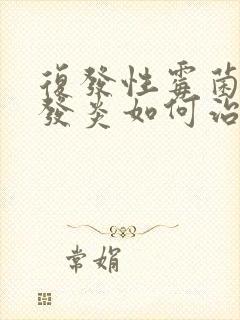 復發性霉菌
發炎如何治
常娟